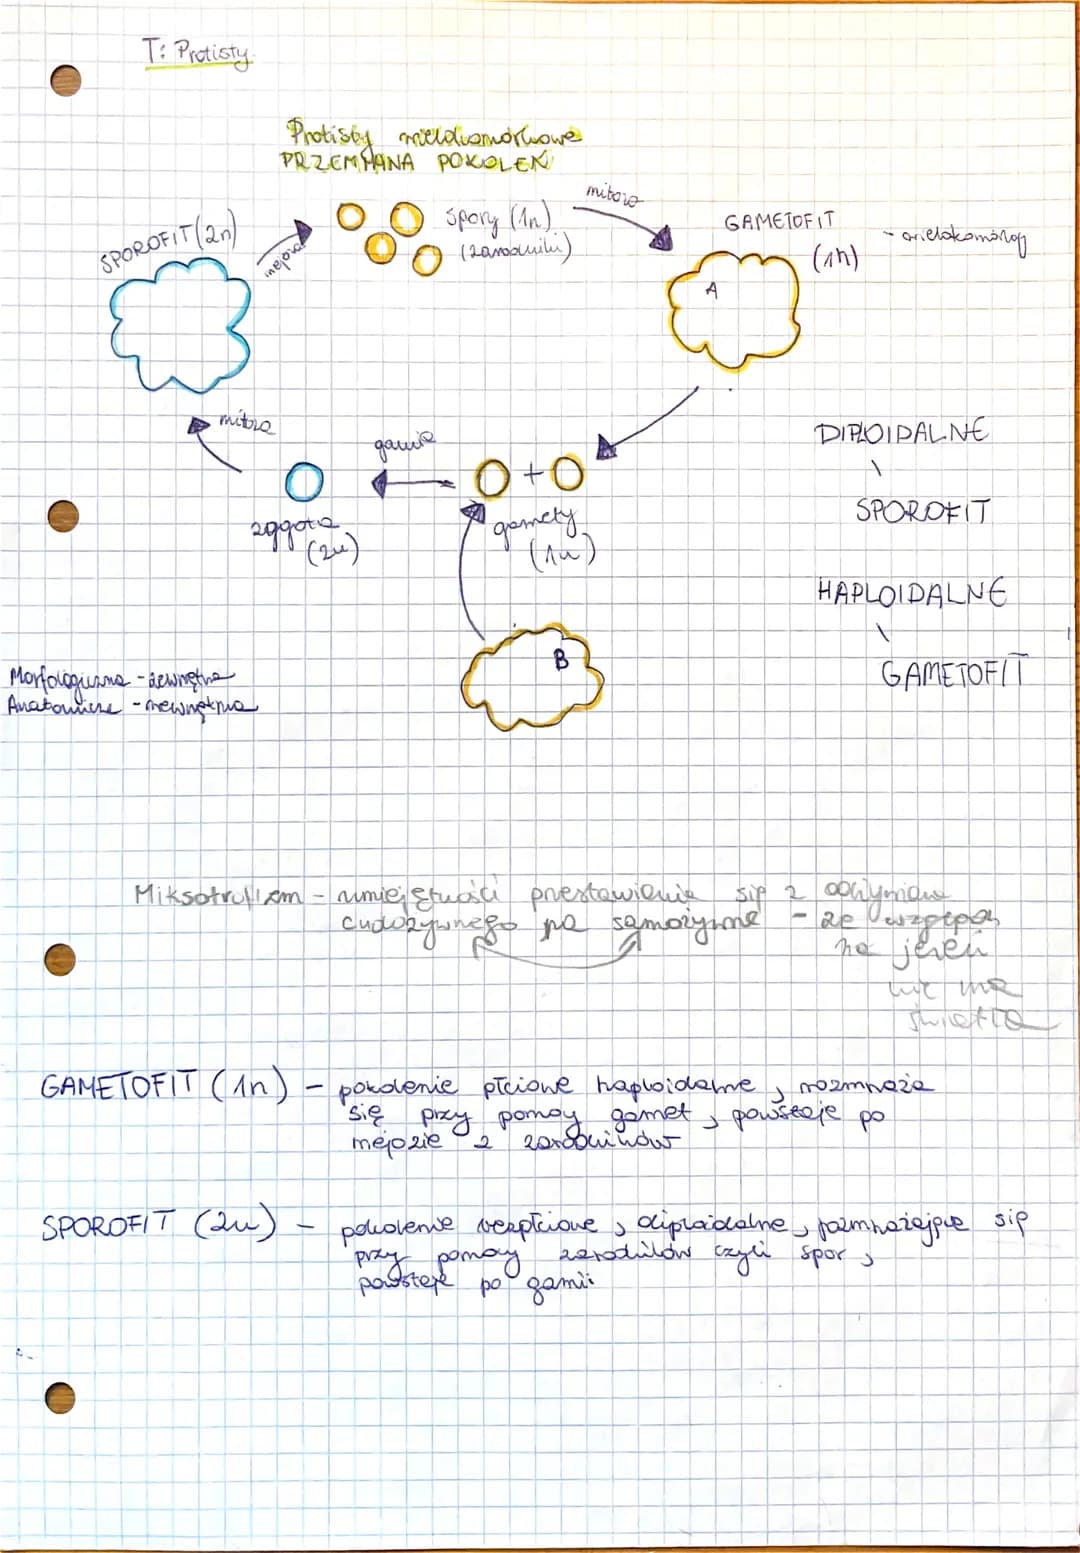 T: Protisty
Protisty wielokomórkowe
PRZEMIANA POKOLEŃ
SPOROFIT (2n)
mejoza
spory (1n)
(zarodniki)
mitoza
GAMETOFIT
(1n)
- wielokomórkowy
A
mitoza
gamia
+
zygota
(2n)
gamety
(1n)
B
DIPLOIDALNE
\
SPOROFIT
HAPLOIDALNE
\
GAMETOFIT
Morfologiczna - zewnętrzna
Anatomiczne - wewnętrzna
Miksotrofizm - umiejętności przestawienia się z odżywiania
cudożywnego na samożywne - ze względu
na jeżeli
nie ma
światła
GAMETOFIT (1n) - pokolenie płciowe haploidalne, rozmnaża
się przy pomocy gamet, powstaje po
mejozie z zarodników
SPOROFIT (2n) - pokolenie bezpłciowe, diploidalne, rozmnażające się
przy pomocy zarodników czyli spor,
powstaje po gamii